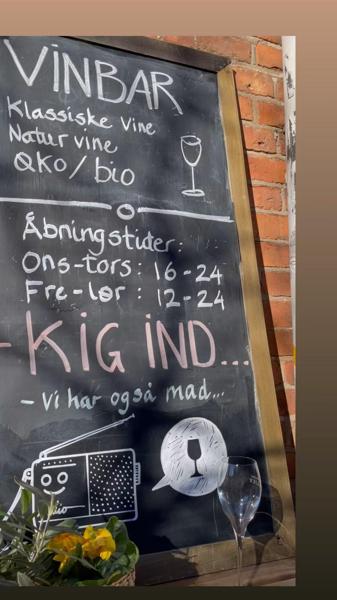 VINBAR
Klassiske vine
Natur vine
ØKO/bio
Åbningstider:
Ons-tors: 16-24
Fre-lør: 12-24
-KIG IND...
- vi har også mad...